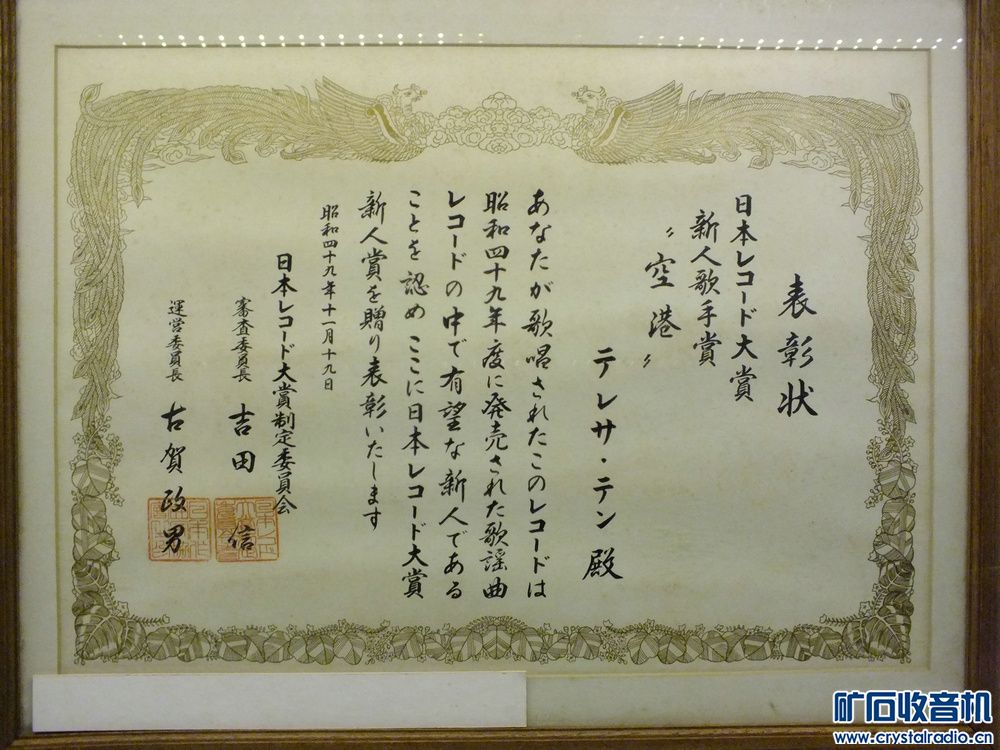 表彰状
日本レコード大賞
新人歌手賞
〃空港〃
テレサ・テン 殿
あなたが歌唱されたこのレコードは
昭和四十九年度に発売された歌謡曲
レコードの中で有望な新人である
ことを認め ここに日本レコード大賞
新人賞を贈り表彰いたします
昭和四十九年十一月十九日
日本レコード大賞制定委員会
審査委員長 吉田 信
運営委員長 古賀政男
矿石收音机
www.crystalradio.cn